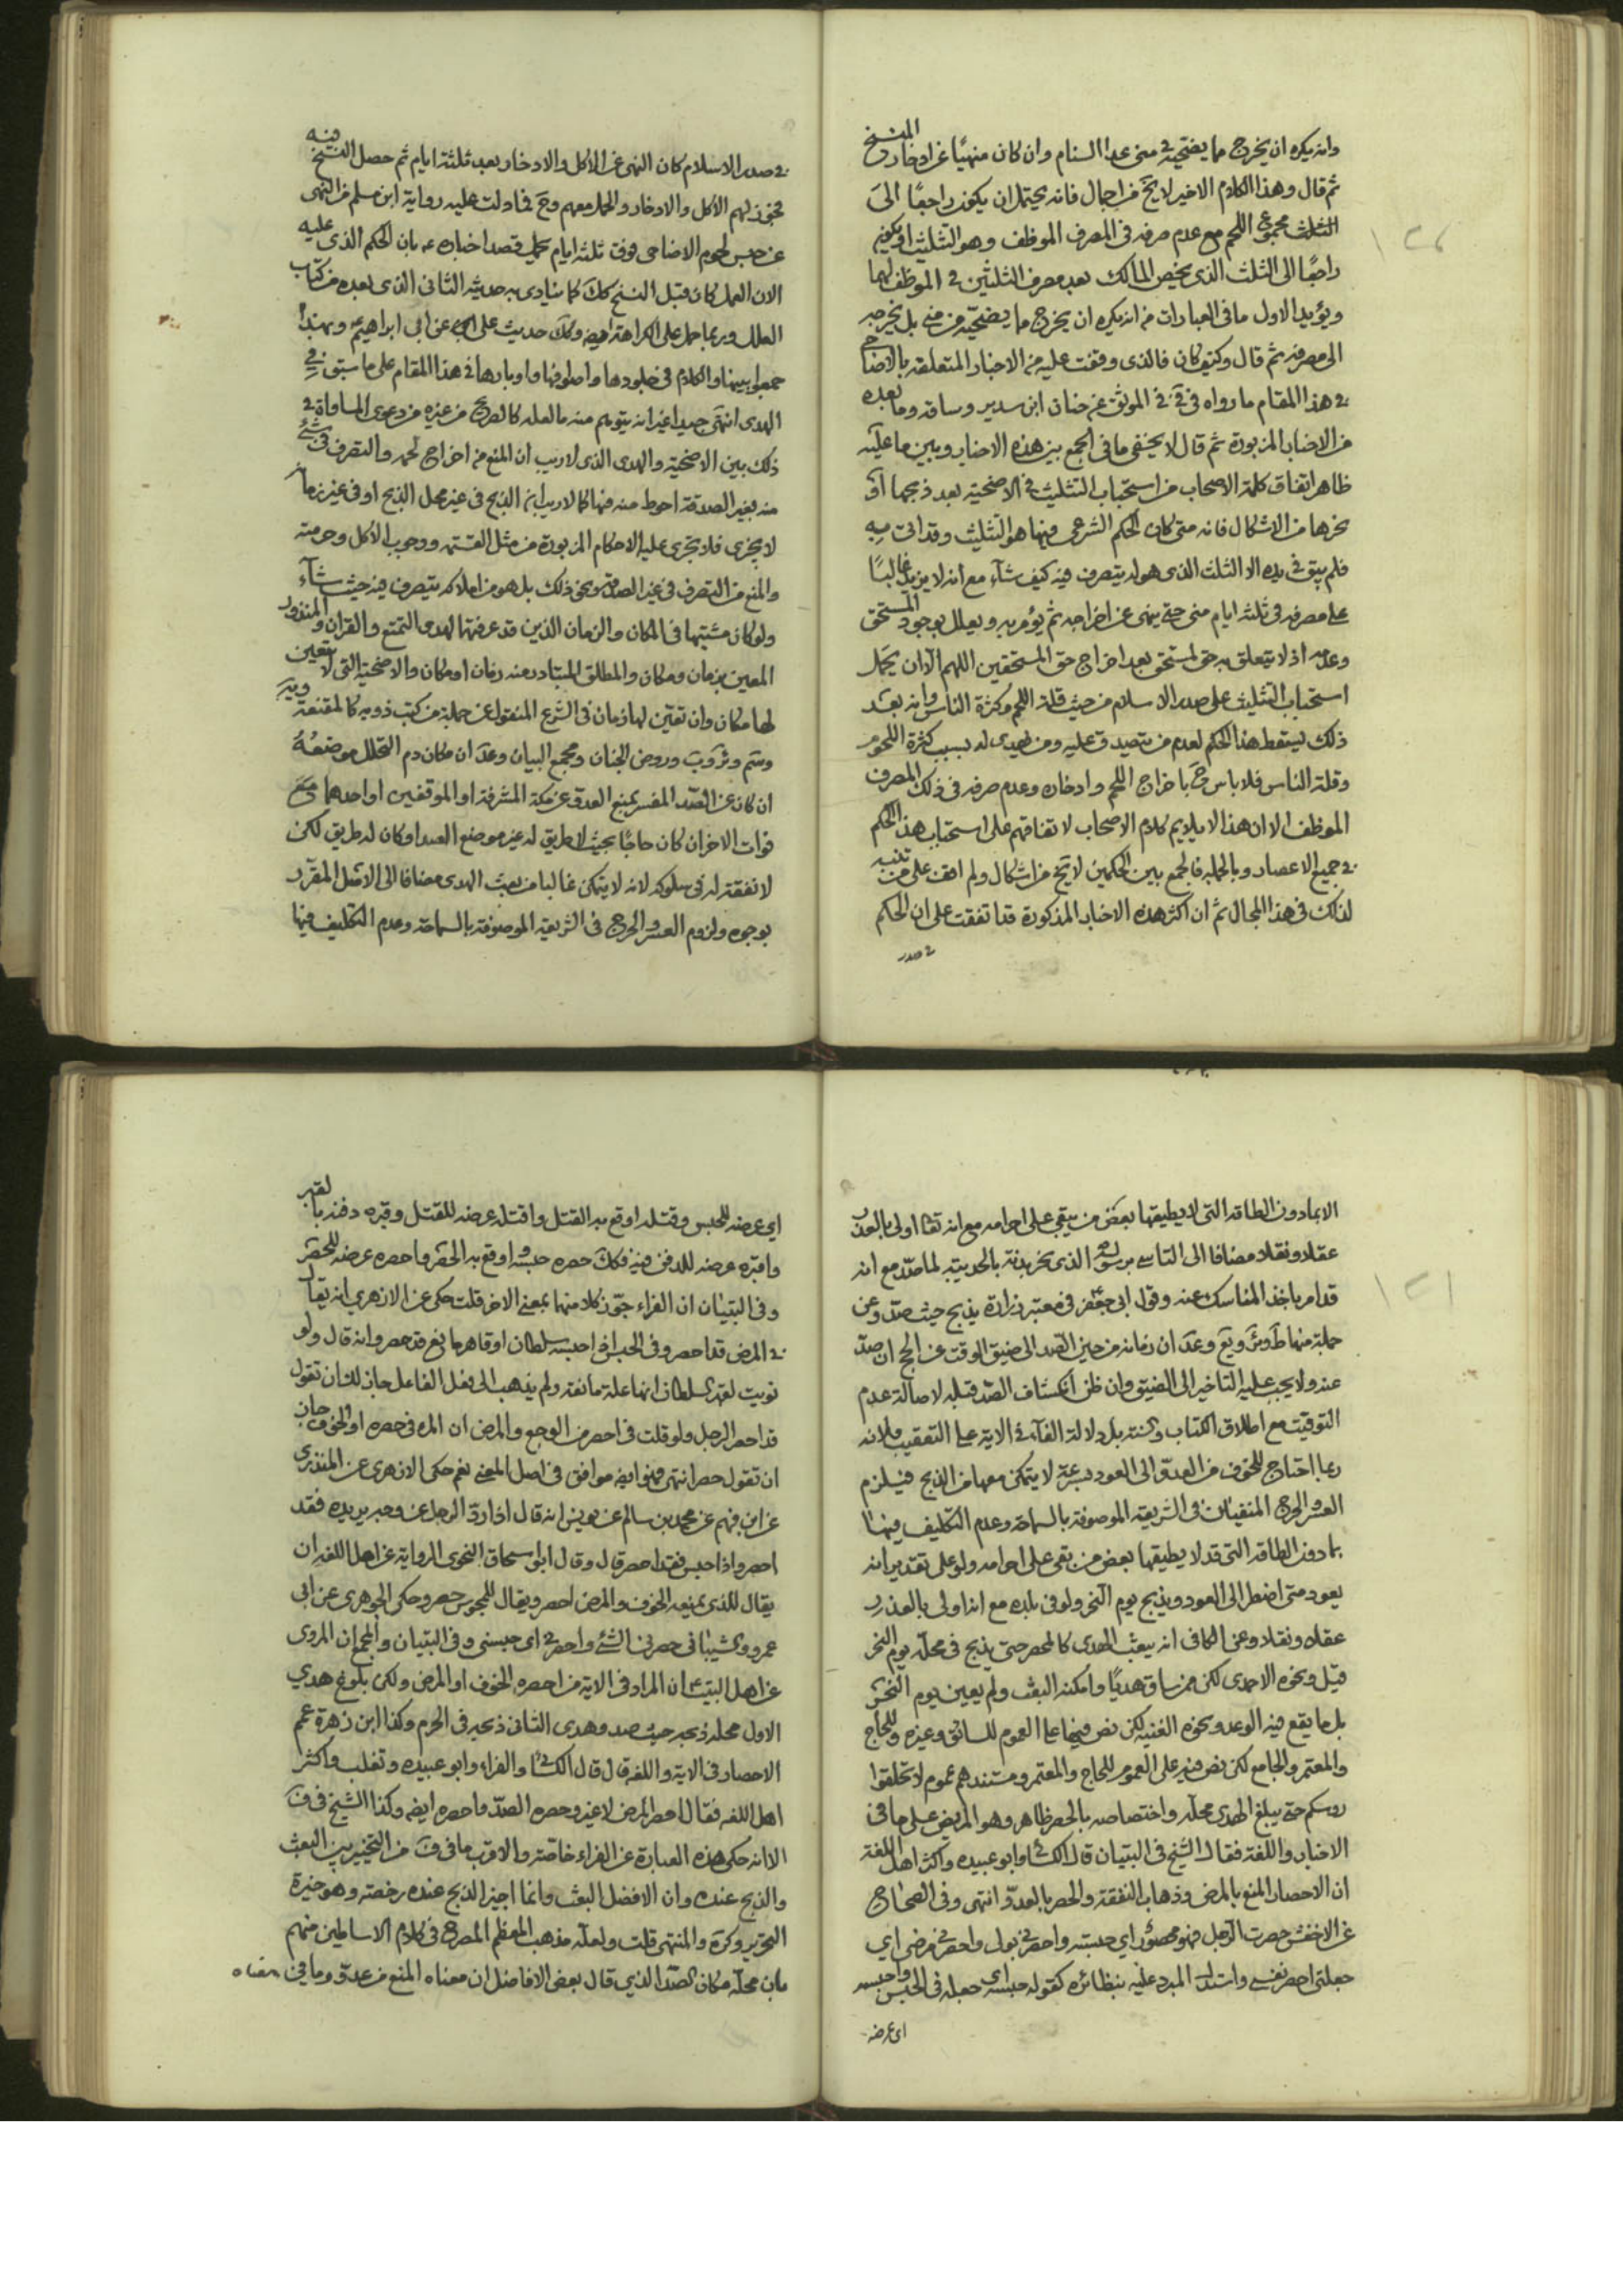 وانه يكره ان يخرج مما يضحيه في منى عدا السنام وان كان منهيا عن ادخار المنسوخ
ثم قال وهذا الكلام الاخير لا يخ من اجمال فانه يحتمل ان يكون راجعًا الى
الثلث مجموع اللحم مع عدم صرفه فى المصرف الموظف وهو التثليث او يكون
راجعًا الى الثلث الذى يخص المالك بعد صرف الثلثين في الموظف لهما
ويؤيد الاول ما فى العبارات من انه يكره ان يخرج مما يضحيه من منى بل يخرجه
الى مصرفه ثم قال وكيف كان فالذى وقفت عليه من الاخبار المتعلقه بالاضاحي
في هذا المقام ما رواه فى في الموثق عن حنان ابن سدير وساقه وما بعده
من الاخبار المزبورة ثم قال لا يخفى ما فى الجمع بين هذه الاخبار وبين ما عليه
ظاهر اتفاق كلمة الاصحاب من استحباب التثليث في الاضحية بعد ذبحها او
نحرها من الاشكال فانه متى كان الحكم الشرعى فيها هو التثليث وقد اتى به
فلم يبق فى يده الا الثلث الذى هو له يتصرف فيه كيف شاء مع انه لا يزيد غالبًا
على مصرفه فى ثلثه ايام منى حتى ينهى عن اخراجه ثم يؤمر به ويعلل بوجود المستحق
وعدمه اذ لا يتعلق به حق لمستحق بعد اخراج حق المستحقين اللهم الا ان يحمل
استحباب التثليث على صدر الاسلام من حيث قلة اللحم وكثرة الناس وانه بعد
ذلك يسقط هذا الحكم لعدم من يتصدق عليه ومن يهدى له بسبب كثرة اللحوم
وقلة الناس فلا باس ح باخراج اللحم وادخاره وعدم صرفه فى ذلك المصرف
الموظف الا ان هذا لا يلايم كلام الاصحاب لاتفاقهم على استحباب هذا الحكم
في جميع الاعصار وبالجمله فالجمع بين الحكمين لا يخ من اشكال ولم اقف على من تنبه
لذلك فى هذا المجال ثم ان اكثر هذه الاخبار المذكورة قد اتفقت على ان الحكم
في صدر
في صدر الاسلام كان النهى عن الاكل والادخار بعد ثلثة ايام ثم حصل النسخ فيه
فجوز لهم الاكل والادخار والحمل معهم وح فما دلت عليه رواية ابن مسلم من النهى
عن حبس لحوم الاضاحى فوق ثلثه ايام يحمل قصد اخباره ع بان الحكم الذى عليه
الان العمل كان قبل النسخ كك كما ينادى به حديثه الثانى الذى بعده من كتاب
العلل وربما حمل على الكراهة ايض وكك حديث على ابن ابى ابراهيم ع وبهذا
جمعوا بينها والكلام فى جلودها واصوافها واوبارها فى هذا المقام على ما سبق في
الهدى انتهى جيدا غير انه يتوهم منه ما لعله كالصريح من غيره من دعوى المساواة في
ذلك بين الاضحية والهدى الذى لا ريب ان المنع من اخراج لحمه والتصرف فى شئ
منه بغير الصدقة احوط منه فيها كما لا ريب ان الذبح فى غير محل الذبح او فى غير زمانه
لا يجزى فلا يجرى عليه الاحكام المزبورة من مثل القسمه ووجوب الاكل وحرمته
والمنع من التصرف فى غير الصدقة ونحو ذلك بل هو من املاكه يتصرف فيه حيث شاء
ولو كان مشتبها فى المكان والزمان الذين قد عرفتهما لهدى التمتع والقران والمنذور
المعين بزمان ومكان والمطلق المتبادر منه زمان او مكان والاضحية التى لا يتعين
لها مكان وان تعين لها زمان فى الشرع المنقول عن جملة من كتب ذويه كالمقنعة
وسم وئر وب وروض الجنان ومجمع البيان وعد ان مكان دم التحلل موضعه
ان كان عن الصد المفسر بمنع العدو عن مكة المشرفة او الموقفين او احدهما مع
فوات الاخر ان كان حاجًا بحيث لا طريق له غير موضع الصد او كان له طريق لكن
لا نفقة له فى سلوكه لانه لا يتمكن غالبا من بعث الهدى مضافا الى الاصل المقرر
بوجوه ولزوم العسر والحرج فى الشريعة الموصوفة بالسماحة وعدم التكليف فيها
الا بما دون الطاقة التى لا يطيقها بعض من يبقى على احرامه مع انه تعا اولى بالعذر
عقلا ونقلا مضافا الى التاسى برسوله الذى نحر بدنه بالحديبيه لما صد مع انه
قد امر باخذ المناسك عنه وقول ابى جعفر فى معتبر زرارة يذبح حيث صد وعن
جملة منها ط وئر ويع وعد ان زمانه من حين الصد الى ضيق الوقت عن الحج ان صد
عنه ولا يجب عليه التاخير الى الضيق وان ظن انكشاف الصد قبله لاصالة عدم
التوقيت مع اطلاق الكتاب والسنه بل دلالة الفاء في الاية على التعقيب ولانه
ربما احتاج للخوف من العدو الى العود بسرعة لا يتمكن معها من الذبح فيلزم
العسر والحرج المنفيان فى الشريعة الموصوفة بالسماحة وعدم التكليف فيها الا
بما دون الطاقة التى قد لا يطيقها بعض من بقى على احرامه ولو على تقدير انه
يعود متى اضطر الى العود ويذبح يوم النحر ولو فى بلده مع انه اولى بالعذر
عقلا ونقلا وعن الكافى انه يبعث الهدى كالمحصر حتى يذبح فى محله يوم النحر
قيل ونحوه الاحمدى لكن فمن ساق هديًا وامكنه البعث ولم يعين يوم النحر
بل ما يقع فيه الوعد ونحوه الغنيه لكن نص فيها على العموم للسائق وغيره وللحاج
والمعتمر والجامع لكن نص فيه على العموم للحاج والمعتمر ومستندهم عموم لا تحلقوا
روسكم حتى يبلغ الهدى محله واختصاصه بالحصر ظاهر وهو المريض على ما فى
الاخبار واللغة فقال الشيخ فى التبيان قال الكسائى وابو عبيده واكثر اهل اللغة
ان الاحصار المنع بالمرض وذهاب النفقة والحصر بالعدو انتهى وفى الصحاح
عن الاخفش حصرت الرجل فهو محصور اى حبسته واحصرنى بول واحصرنى مرضى اى
جعلنى احصر نفسى واستدل المبرد عليه بنظائره كقوله حبسه اى جعله فى الحبس واحبسه
اى عرضه
اى عرضه للحبس وقتله اوقع به القتل واقتله عرضه للقتل وقبره دفنه بالقبر
واقبره عرضه للدفن فيه فكك حصره حبسه اوقع به الحصر واحصره عرضه للحصر
وفى التبيان ان الفراء جوز كلا منهما بمعنى الاخر قلت حكى عن الازهرى انه يقال
في المرض قد احصر وفى الحبس اذا حبسه سلطان او قاهر مانع قد حصر وانه قال ولو
نويت لقهر السلطان انها علة مانعة ولم يذهب الى فعل الفاعل جاز لك ان تقول
قد احصر الرجل ولو قلت فى احصر من الوجع والمرض ان المره فى حصره او الخوف جاز
ان تقول حصر انتهى فهو ايض موافق فى اصل المعنى نعم حكى الازهرى عن المنذرى
عن ابن فهم عن محمد بن سالم عن يونس انه قال اذا رد الرجل عن وجه يريده فقد
احصر واذا حبس فقد احصر قال وقال ابو اسحاق النحوى الرواية عن اهل اللغه ان
يقال للذى يمنعه الخوف والمرض احصر ويقال للمحبوس حصر وحكى الجوهرى عن ابى
عمرو الشيبانى حصرنى الشئ واحصرنى اى حبسنى وفى التبيان والمجمع ان المروى
عن اهل البيت ان المراد فى الاية من احصره الخوف او المرض ولكن بلوغ هدي
الاول محله ذبحه حيث صد وهدى الثانى ذبحه فى الحرم وكذا ابن زهرة عمم
الاحصار فى الاية واللغة قال قال الكسائى والفراء وابو عبيده وثعلب واكثر
اهل اللغه يقال احصره المرض لا غير وحصره الصد واحصره ايض وكذا الشيخ فى ف
الا انه حكى هذه العبارة عن الفراء خاصة والاقرب ما فى ف من التخيير بين البعث
والذبح عنده وان الافضل البعث وانما اجيز الذبح عنده رخصة وهو خيرة
التحرير وكره والمنتهى قلت ولعله مذهب المعظم المصرح فى كلام الاساطين منهم
بان محله مكان الصد الذى قال بعض الافاضل ان معناه المنع من عدو وما فى معناه